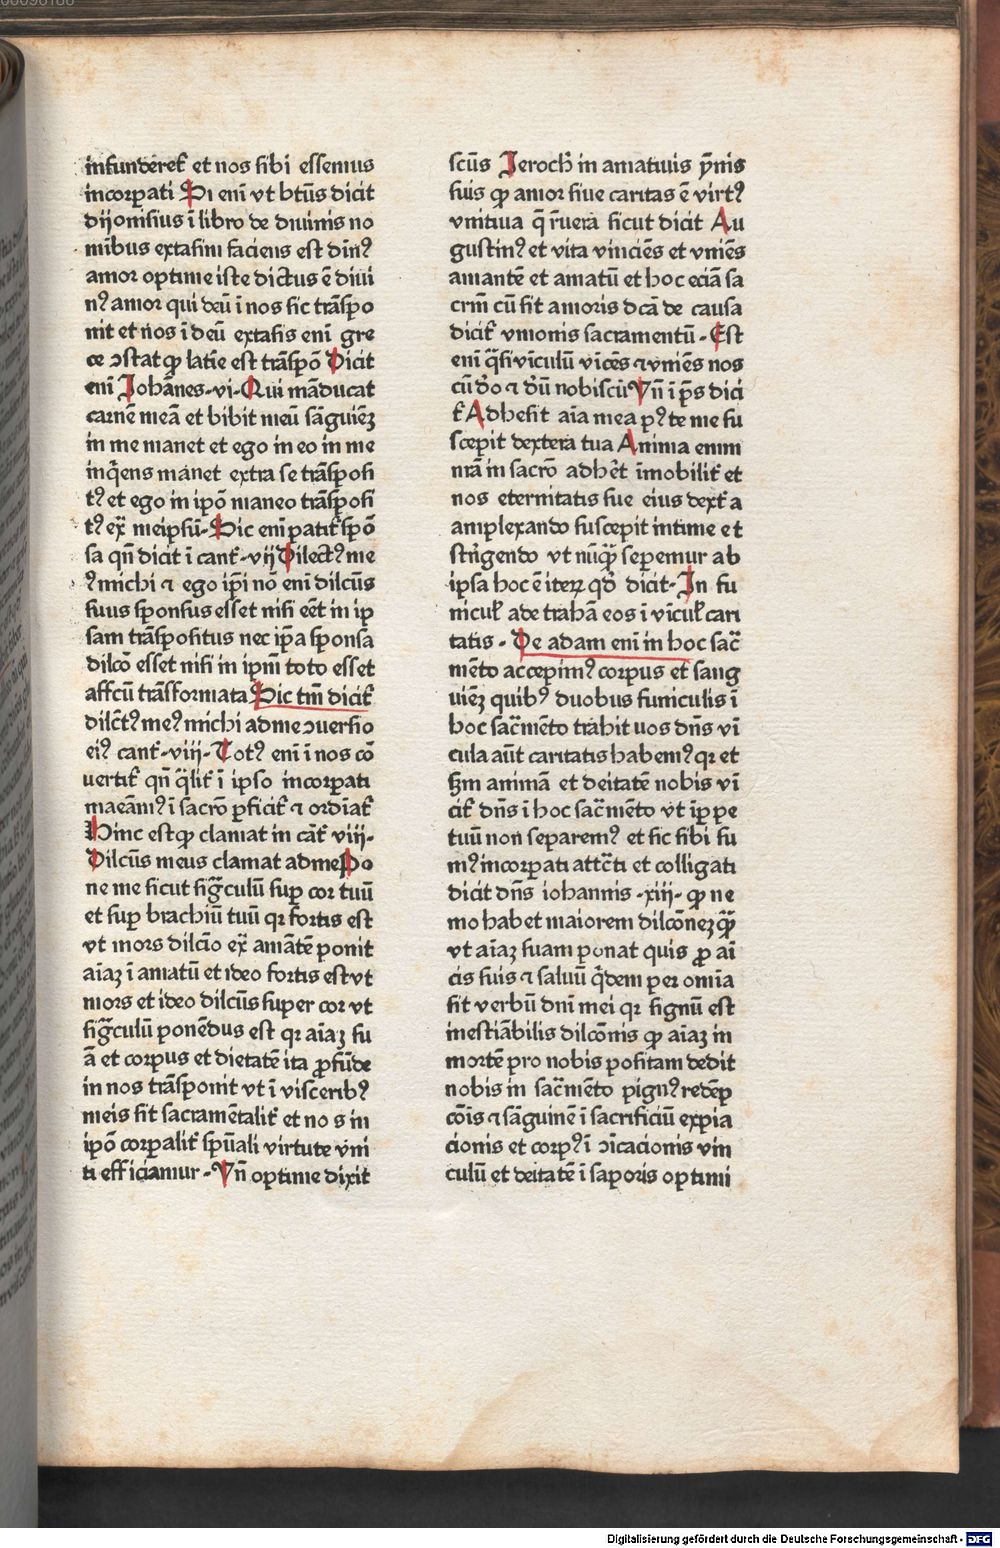 infunderet᷑ et nos sibi essemus
incorꝑati Si eni̅ vt bt̅us dicit
dijonisius i̅ libro de diuinis no
minibus extasim faciens est din̅ꝰ
amor optime iste dictus e̅ diui
nꝰ amor qui deu̅ i̅ nos sic tra̅spo
nit et nos i̅ deu̅ extasis eni̅ gre
ce ꝯstat ꝙ latine est tra̅spo̅ Dicit
eni̅ Joha̅nes-vi-Qui ma̅ducat
carne̅ mea̅ et bibit meu̅ sa̅guine̅
in me manet et ego in eo in me
inq̅ens manet extra se tra̅sposi
tꝰ et ego in ip̅o maneo tra̅sposi
tꝰ ex̅ meipsu̅-Sic eni̅ patit᷑ spo̅
sa qn̅ dicit i̅ cant᷑-vij Dilectꝰ me
ꝰ michi ⁊ ego ip̅i no̅ eni̅ dilc̅us
suus sponsus esset nisi ee̅t in ip
sam tra̅spositus nec ip̅a sponsa
dilc̅o esset nisi in ip̅m toto esset
affc̅u tra̅sformata Sic tm̅ dicit᷑
dilc̅tꝰ meꝰ michi ad me ꝯuersio
eiꝰ cant᷑-viii-Totꝰ eni̅ i̅ nos co̅
uertit᷑ qn̅ q̅lit᷑ i̅ ipso incorꝑati
maea̅mꝰ i̅ sacro̅ ꝑficit᷑ ⁊ ordia̅t᷑
Hinc est ꝙ clamat in ca̅t᷑ viii-
Dilc̅us meus clamat ad me Po
ne me sicut sig̅culu̅ suꝑ cor tuu̅
et suꝑ brachiu̅ tuu̅ qr fortis est
vt mors dilc̅io ex̅ ama̅te̅ ponit
aia̅ꝫ i̅ amatu̅ et ideo fortis est vt
mors et ideo dilc̅us super cor vt
sig̅culu̅ pone̅dus est qr aia̅ꝫ su
a̅ et corpus et dietate̅ ita ꝓfu̅de
in nos tra̅sponit vt i̅ visceribꝰ
meis sit sacrame̅talit᷑ et no s in
ip̅o corꝑalit᷑ spu̅ali virtute vni
ti efficiamur-Vn̅ optime dixit
scu̅s Jeroch̅ in amatiuis ym̅is
suis ꝙ amor siue caritas e̅ virtꝰ
vnitiua q̅ r̅uera sicut dicit Au
gustinꝰ et vita vincie̅s et vnie̅s
amante̅ et amatu̅ et hoc ecia̅ sa
crm̅ cu̅ sit amoris dc̅a de causa
dicit᷑ vnionis sacramentu̅-Est
eni̅ q̅si vi̅culu̅ vi̅ce̅s ⁊ vnie̅s nos
cu̅ d̅o ⁊ d̅u̅ nobiscu̅ Vn̅ i̅ ps̅ dici
t᷑ Adhesit aia mea pꝰ te me su
scepit dextera tua Anima enim
nra̅ in sacro̅ adhe̅t i̅mobilit᷑ et
nos eternitatis sue eius dext᷑a
amplexando suscepit intime et
strīgendo vt nu̅q̅ꝫ sepemur ab
ipsa hoc e̅ iteꝝ qd̅ dicit-In fu
nicul᷑ ade traha̅ eos i̅ vi̅cul᷑ cari
tatis - De adam eni̅ in hoc sac̅
me̅to accepimꝰ corpus et sang
uine̅ quibꝰ duobus funiculis i̅
hoc sac̅me̅to trahit uos dn̅s vi̅
cula au̅t caritatis habemꝰ qr et
sm̅ anima̅ et deitate̅ nobis vi̅
cit᷑ dn̅s i̅ hoc sac̅me̅to vt ip̅ pe
tuu̅ non separemꝰ et sic sibi su
mꝰ incorꝑati attc̅ti et colligati
dicit dn̅s iohannis -xiii- ꝙ ne
mo habet maiorem dilco̅neꝫ q̅ꝫ
vt aia̅ꝫ suam ponat quis ꝓ ai̅
cis suis ⁊ saluu̅ q̅dem per omia̅
sit verbu̅ dni̅ mei qr signu̅ est
inestia̅bilis dilco̅nis ꝙ aia̅ꝫ in
morte̅ pro nobis positam dedit
nobis in sac̅me̅to pignꝰ rede̅p
co̅is ⁊ sa̅guine̅ i̅ sacrificiu̅ expia
cionis et corpꝰ i̅ ꝯi̅cacionis vin
culu̅ et deitate̅ i̅ saporis optimi